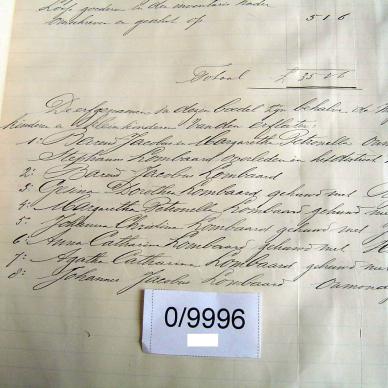 Losse goederen in den inventaris nader
omschreven en geschat op 5 1 6
Totaal £ 35 " 6
De erfgenamen in dezen boedel zijn behalve de
kinderen en kleinkinderen van den erflater
1: Barend Jacobus en Margaretha Petronella
Stephanus Lombaard overleden in
2: Barend Jacobus Lombaard
3: Gesina Dorothea Lombaard gehuwd met
4: Margaretha Petronella Lombaard gehuwd met
5: Johanna Christina Lombaard gehuwd met
6: Anna Catharina Lombaard gehuwd met
7: Agatha Catharina Lombaard gehuwd met
8: Johannes Jacobus Lombaard
0/9996